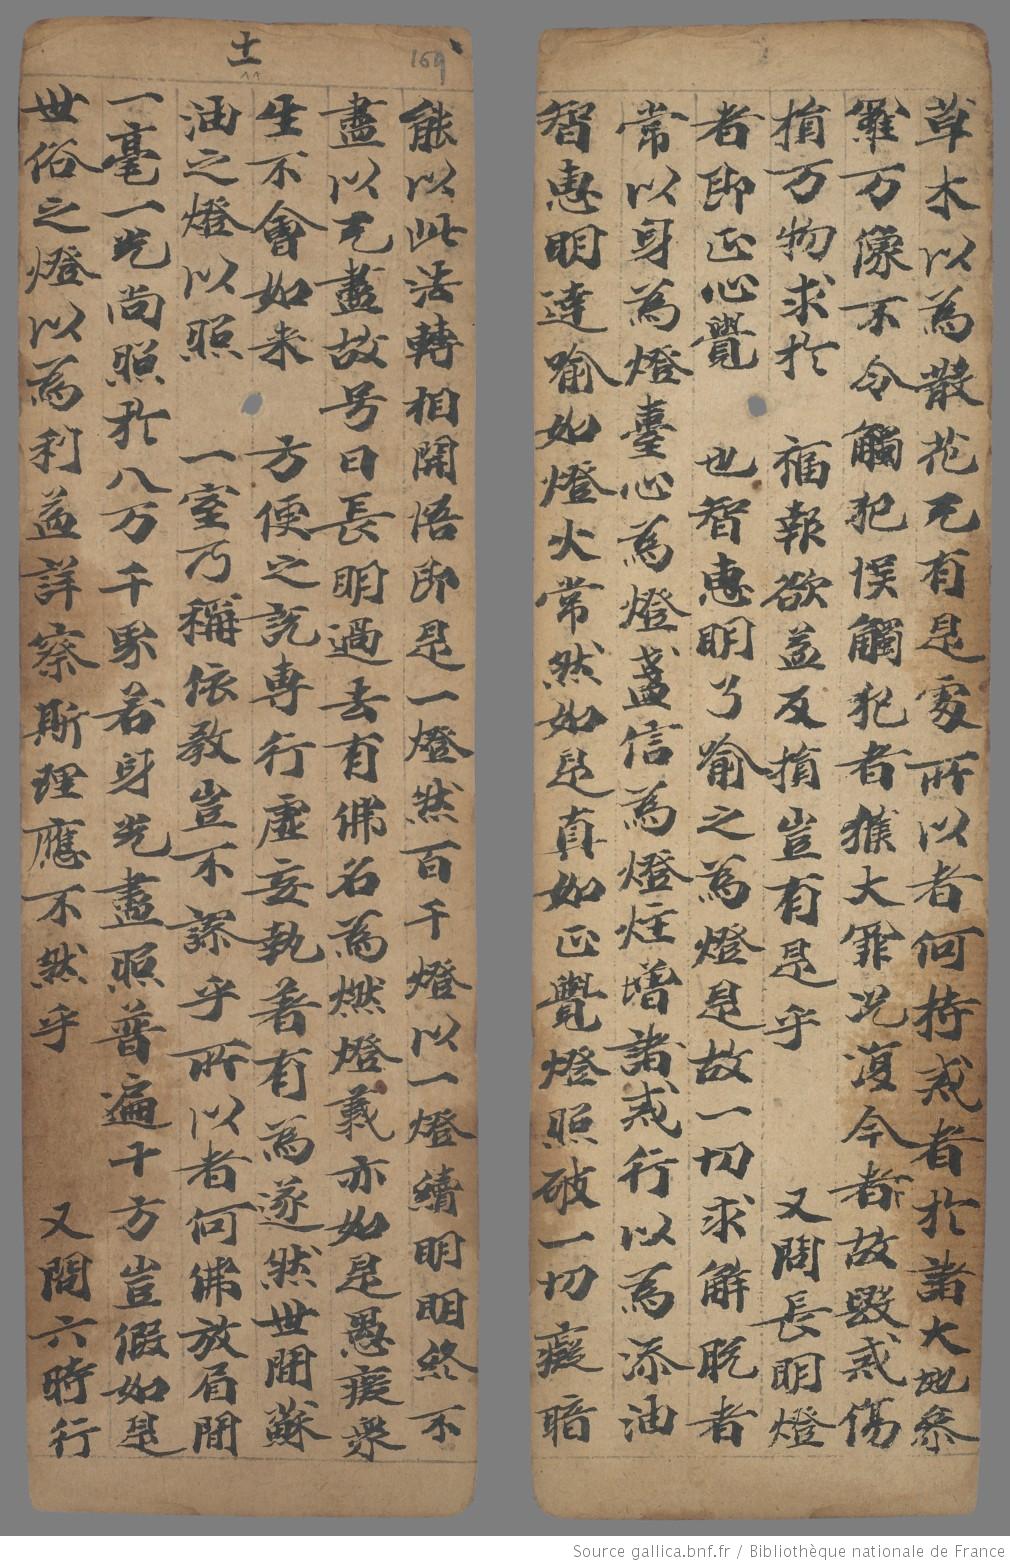 草木以為散花无有是處所以者何持戒者於諸大地叅
羅万像不令觸犯悮觸犯者獲大罪况復今者故毀戒傷
損万物求於福報欲益反損豈有是乎 又問長明燈
者即正心覺也智惠明了喻之為燈是故一切求解脫者
常以身為燈臺心為燈盞信為燈炷增諸戒行以為添油
智惠明達喻如燈火常然如是真如正覺燈照破一切癡暗
十二
169
能以此法轉相開悟即是一燈然百千燈以一燈續明明終不
盡以无盡故号曰長明過去有佛名為燃燈義亦如是愚癡衆
生不會如来方便之説專行虛妄執著有為遂然世間蘇
油之燈以照一室乃稱依教豈不謬乎所以者何佛放眉間
一毫一光尚照於八万千界若身光盡照普遍十方豈假如是
世俗之燈以為利益詳察斯理應不然乎 又問六時行
Source gallica.bnf.fr / Bibliothèque nationale de France